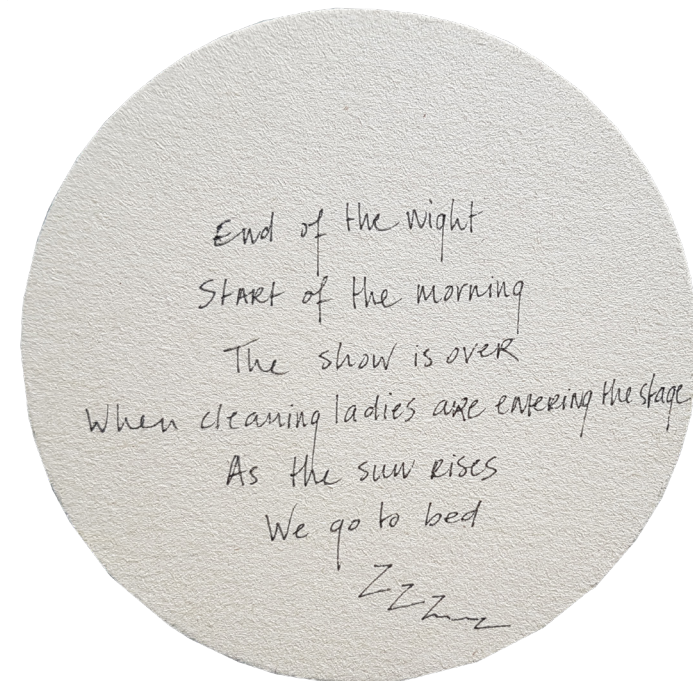 End of the night
Start of the morning
The show is over
When cleaning ladies are entering the stage
As the sun rises
We go to bed
Zzzz